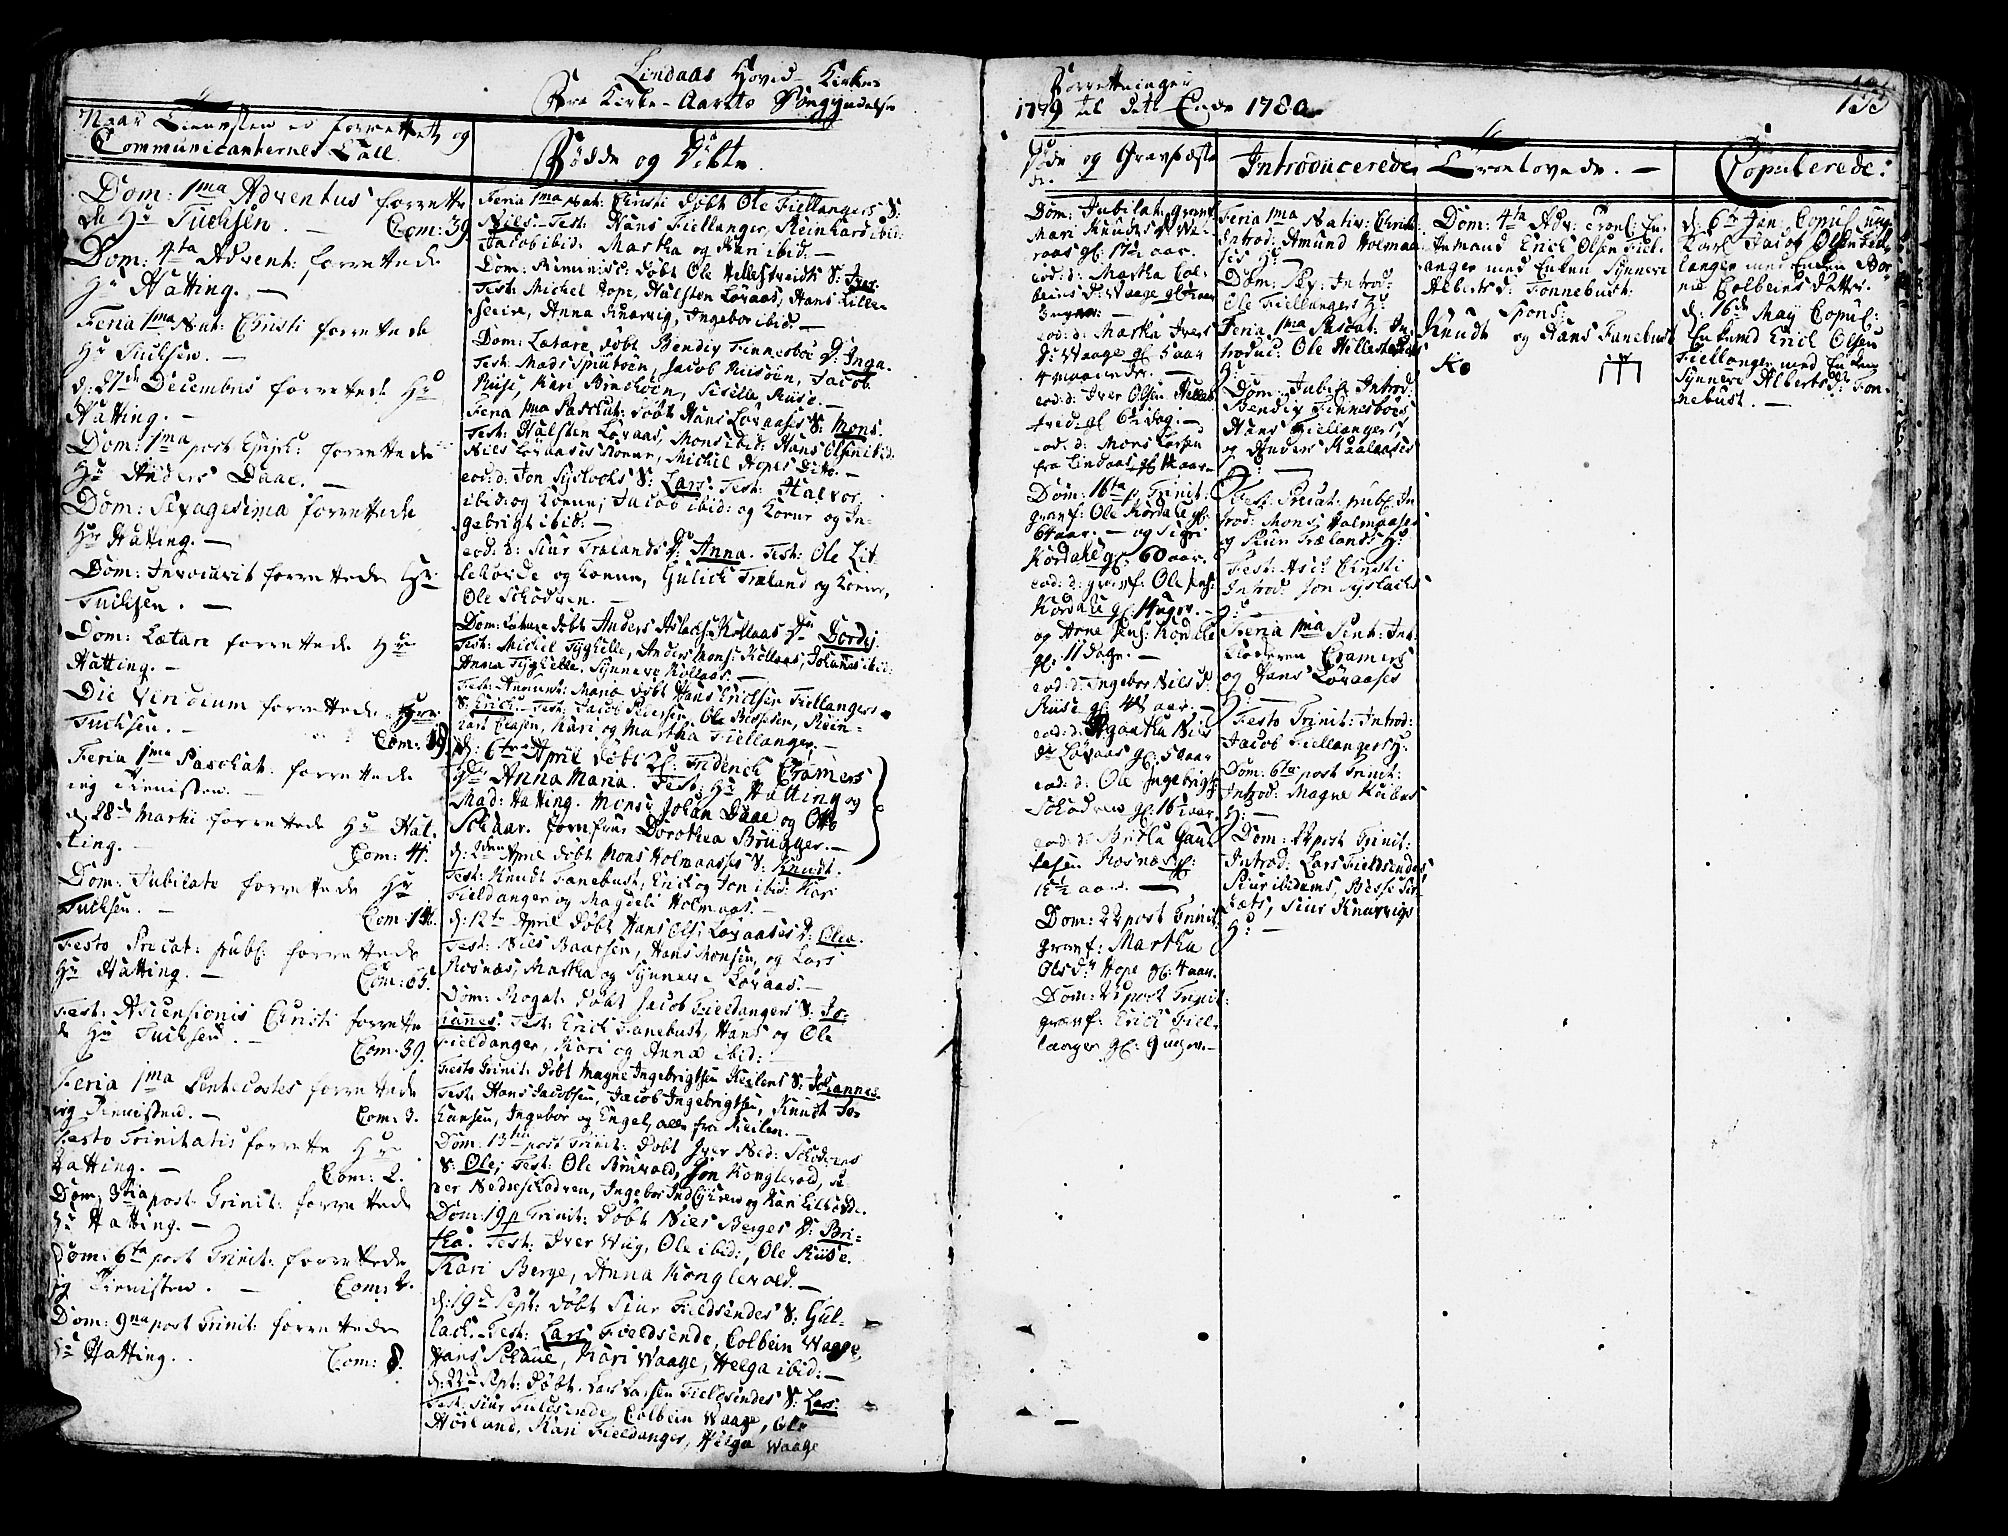 Lindaas Hoved-Kirkes
Fra Kirke-Aarets Begyndelse
Naar Tienesten er forrettet og
Communicanternes Tall.
Fødde og Døbte
Dom: 1ma Adventus forrette
de Hr Tuchsen. — Com: 39
Dom: 4ta Advent: forrettede
Hr Hatting. —
Feria 1ma Nat: Christi forrettede
Hr Tuchsen. —
d: 27de Decembris forrettede Hr
Hatting. —
Dom: 1ma post Epiph: forrettede
Hr Anders Daae. —
Dom: Sexagesima forrettede
Hr Hatting. —
Dom: Invocavit forrettede Hr
Tuchsen. —
Dom: Lætare forrettede Hr
Hatting. —
Die Viridium forrettede Hr
Tuchsen. — Com: 19
Feria 1ma Paschat: forrettede
ieg Tienisten. —
d: 28de Martii forrettede Hr Hat-
ting. — Com: 4.
Dom: Jubilate forrettede Hr
Tuchsen. — Com: 14.
Festo Precat: publ: forrettede
Hr Hatting. — Com: 65.
Fest: Ascensionis Christi forrette
de Hr Tuchsen. — Com: 39.
Feria 1ma Pentecostes forrettede
ieg Tienisten. — Com: 3.
Festo Trinitatis forrette Hr
Hatting. — Com: 2.
Dom: 3tia post Trinit: forrettede
Hr Hatting. —
Dom: 6ta post Trinit: forrettede
ieg Tienisten. — Com: 2.
Dom: 9na post Trinit: forrettede
Hr Hatting. Com: 8.
Feria 1ma Nat: Christi døbt Ole Fiellangers S:
Niels. Test: Hans Fiellanger, Reinhard ibid:
Jacob ibid: Martha og Kari ibid. —
Dom: Reminisc: døbt Ole Hellestveidts S: Iver
Test: Michel Hope, Halsten Løvaas, Hans Lille-
Anna Knarvig, Ingebor ibid: —
Dom: Lætare døbt Bendix Finnesbøe D: Inga.
Test: Mads Jacob Jacob
Riise, Kari Siselle Riise. —
Feria 1ma Paschat: døbt Hans Løvaases S: Mons.
Test: Halsten Løvaas, Mons ibid: Hans Olsen ibid:
Niels Løvaases Kone, Michel Hopes Ditto. —
eod: d: Jon Syslachs S: Lars. Test: Halvor
ibid: og Kone, Jacob ibid: og Kone og In-
gebrigt ibid: —
eod: d: Siur Trælands D: Anna. Test: Ole Lit
og Kone, Gulich Træland og Kone,
Ole Schodven. —
Dom: Lætare døbt Anders Aslachs: Kollaas D: Gordej
Test: Michel Tyghelle, Anders Mons: Kollaas, Johannes ibid:
Anna Tyghelle, Synneve Kollaas. —
Fest: Annunt: Maria døbt Hans Erichsen Fiellangers
S: Erich. Test: Jacob Pedersen, Ole Reinh-
Kari og Martha Fiellanger. —
d: 6te April døbt Hr Friderich Cramers
D: Anna Maria. Test: Hr Hatting og
Mad: Hatting. Mons: Johan Daae og Otto
Schaar. Jomfrue Dorothea Brügger. —
d: 2den April døbt Mons Holmaases S: Knudt.
Test: Knudt Fanebust, Erich og Jon ibid: Kari
Fieldanger og Magdeli Holmaas. —
d: 12te April døbt Hans Ols: Løvaases D: Olea.
Test: Niels Baarsen, Hans Monsen, og Lars
Rosnæs, Martha og Synneve Løvaas. —
Dom: Rogat: døbt Jacob Fieldangers S: Jo-
hannes. Test: Erich Fanebust, Hans og Ole
Fieldanger, Kari og Anna ibid: —
Festo Trinit: døbt Magne Ingebrigtsen Keilens S: Johannes.
Test: Hans Jacobsen, Jacob Ingebrigtsen, Knudt Jo-
hansen, Ingebor og Engel, alle fra Keilen. —
Dom: 13tia post Trinit: døbt Iver Ned: Schodvens
S: Ole; Test: Ole Brunvold, Jon Konglevold,
Nedreschodven, Ingebor og Kari
Dom: 19 p: Trinit: døbt Niels Berges D: Bri-
tha. Test: Iver Wiig, Ole ibid:, Ole Riise.
Kari Berge, Anna Konglevold. —
d: 19de Sept: døbt Siur Fieldsendes S: Gul-
lach. Test: Lars Fieldsende, Colbein Waage,
Hans Schaue, Kari Waage, Helga ibid: —
d: 22de Sept: døbt Lars Larsen Fieldsendes S: Lars.
Test: Siur Fieldsende, Colbein Waage, Ole
Hopland, Kari Fieldanger, Helga Waage
Forretninger
1779 til dets Ende 1780.
Døde og Gravfæste
de.
Introducerede
Troelovede. —
Copulerede:
Dom: Jubilat: gravf:
Mari Knudsd: Wa-
raas gl: 17½ aar
eod: d: Martha Col-
beinsd: Waage gl:
eod: d: Martha Ivers
D: Waage gl: 5 aar
4 maaneder. —
eod: d: Iver Olsen Hellest
tveid gl: 6½ dag. —
eod: d: Mons Larsen
fra Lindaas gl: aar —
Dom: 16ta p: Trinit:
gravf: Ole Kordahl gl:
64 aar. — og Sigri
Kordahl gl: 60 aar.
eod: d: gravf: Ole Jens:
Kordahl gl: 14 uger. —
og Arne Jens: Kordahl
gl: 11 dage. —
eod: d: Ingebor Nils D:
Riise gl: 48 aar. —
eod: d: Agaatha Niels
Dr Løvaas gl: 50 aar
eod: d: Ole Ingebrigts:
Schodven gl: 16½ aar.
eod: d: Britha Gaul
Rosnæs gl:
15½ aar. —
Dom: 22 post Trinit:
gravf: Martha
Olsdr Hope gl: 4 aar.
Dom: 22 post Trinit:
gravf: Erich Fiel-
langer gl: 9 uger. —
Feria 1ma Nativ: Christi
Introd: Amund Holmaa
ses H: —
Dom: Sex: Introd:
Ole Fiellangers H:
Feria 1ma Pascat: In-
troduc: Ole Hillestveidts
H:
Dom: Jubil: Introd:
Bendix Finnesbøes
Hans Fiellangers,
og Anders Kaalaases
H: —
Fest: Precat: publ: In-
trod: Mons Holmaases
og Siur Trælands H:
Festo Asc: Christi
Introd: Jon Syslachs
H: —
Feria 1ma Pent: Int:
Cramers
og Hans Løvaases
H: —
Festo Trinit: Introd:
Jacob Fiellangers H:
Dom: 6ta post Trinit:
Introd: Magne Keilens
H: —
Dom: 22 post Trinit:
Introd: Lars Fieldsendes
Siur ibidems,
Siur Knarvigs
H: —
Dom: 4ta Adv: troel: En-
kemand Erich Olsen Fiel-
anger med Enken Synneve
Albertsd: Fonnebust:
Spons:
Knudt og Hans Fanebust
d: 6te Jan: Copul: ung-
karl Jacob Olsen Fiel
langer med Enken Bor-
ni Colbeins datter.
d: 16de May Copul:
Enkemd Erich Olsen
Fiellanger med Enken
Synneve Albertsdr: Fon-
nebust. —